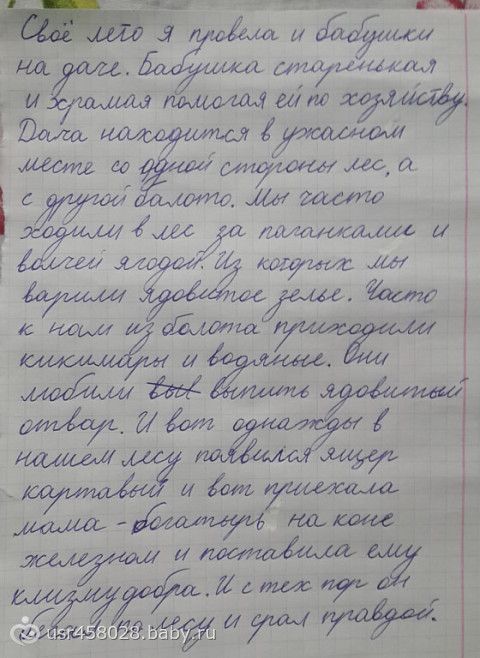 Своё лето я провела и бабушки
на даче. Бабушка старенькая
и храмая помогая ей по хозяйству.
Дача находится в ужасном
месте со одной стороны лес, а
с другой балото. Мы часто
ходили в лес за паганками и
волчей ягодой. Из которых мы
варили ядовитое зелье. Часто
к нам из болота приходили
кикимары и водяные. Они
любили выпить ядовитый
отвар. И вот однажды в
нашем лесу появился ящер
картавый и вот приехала
мама - богатырь на коне
железном и поставила ему
клизму добра. И с тех пор он
по лесу и срал правдой.
usr458028.baby.ru